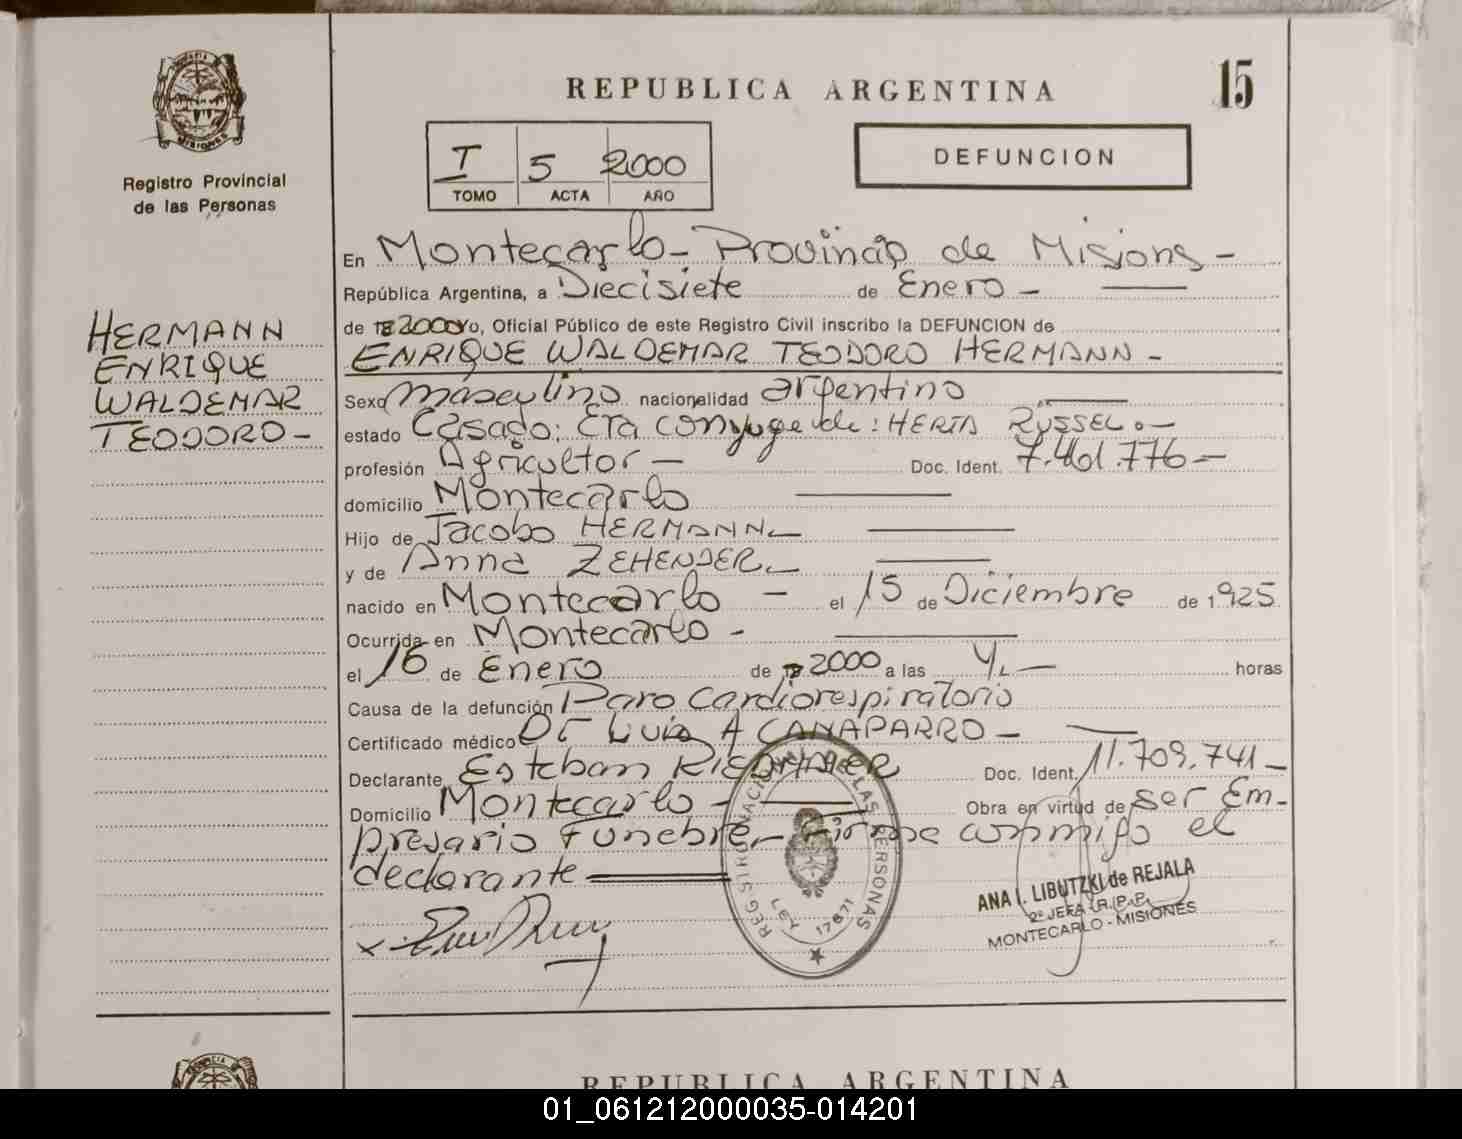 REPUBLICA ARGENTINA
15
MISIONES
Registro Provincial
de las Personas
I 5 2000
TOMO ACTA AÑO
DEFUNCION
HERMANN
ENRIQUE
WALDEMAR
TEODORO-
En Montecarlo - Provincia de Misions -
República Argentina, a Diecisiete de Enero -
de 2000 yo, Oficial Público de este Registro Civil inscribo la DEFUNCION de
ENRIQUE WALDEMAR TEODORO HERMANN -
Sexo masculino nacionalidad argentino
estado Casado: Era conyuge de: HERTA RUSSEL.-
profesión Agricultor - Doc. Ident. 7.461.776-
domicilio Montecarlo
Hijo de Jacobo HERMANN.-
y de Anna ZEHENDER.-
nacido en Montecarlo - el 15 de Diciembre de 1.925
Ocurrida en Montecarlo -
el 16 de Enero de 2000 a las horas
Causa de la defunción Paro cardiorespiratorio
Certificado médico Dr Luis A CANAPARRO -
Declarante Esteban Doc. Ident. 11.709.741-
Domicilio Montecarlo - Obra en virtud de ser Em-
presario Funebre.- Firma conmigo el
declarante
REGISTRO NACIONAL DE LAS PERSONAS
LEY 17671
ANA I. LIBUTZKI de REJALA
2º JEFA R.P.P.
MONTECARLO - MISIONES
REPUBLICA ARGENTINA
01_061212000035-014201